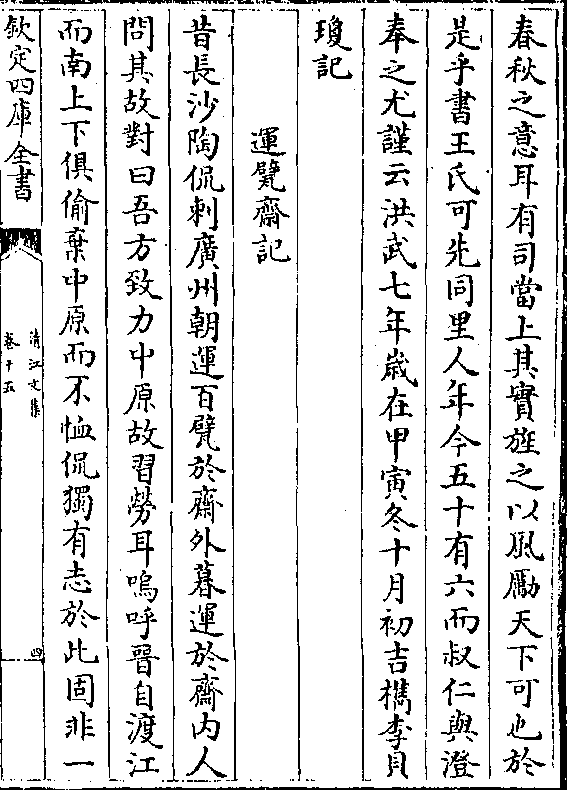 春秋之意耳有司當上其實旌之以風勵天下可也於
是乎書王氏可先同里人年今五十有六而叔仁與澄
奉之尤謹云洪武七年嵗在甲寅冬十月初吉檇李貝
瓊記
運甓齋記
昔長沙陶侃刺廣州朝運百甓於齋外暮運於齋内人
問其故對曰吾方致力中原故習勞耳嗚呼晉自渡江
而南上下俱偷棄中原而不恤侃獨有志於此固非一
欽定四庫全書
清江文集
卷十五
四